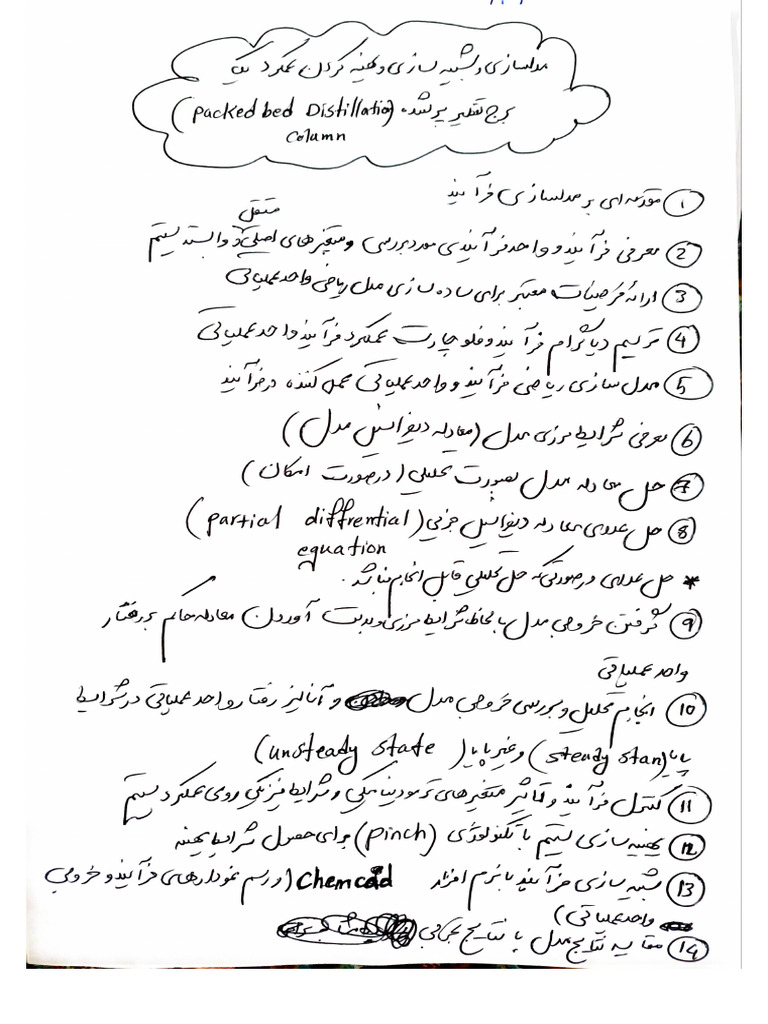 مدلسازی و شبیه سازی و بهینه کردن عملکرد یک
برج تقطیر پر شده (Packed bed Distillation
column)
① مقدمه ای بر مدلسازی فرآیند
② معرفی فرآیند و واحد فرآیندی مورد بررسی و متغیرهای اصلی مستقل و وابسته سیستم
③ ارائه فرضیات معتبر برای ساده سازی مدل ریاضی واحد عملیاتی
④ ترسیم دیاگرام فرآیند و فلوچارت عملکرد فرآیند واحد عملیاتی
⑤ مدل سازی ریاضی فرآیند و واحد عملیاتی عمل کننده در فرآیند
⑥ معرفی شرایط مرزی مدل (معادله دیفرانسیل مدل)
⑦ حل معادله مدل بصورت تحلیلی (در صورت امکان)
⑧ حل عددی معادله دیفرانسیل جزیی (partial diffrential
equation
* حل عددی در صورتی که حل تحلیلی قابل انجام نباشد.
⑨ گرفتن خروجی مدل با لحاظ شرایط مرزی و بدست آوردن معادله حاکم بر رفتار
واحد عملیاتی
⑩ انجام تحلیل و بررسی خروجی مدل و آنالیز رفتار واحد عملیاتی در شرایط
پایا (steady stan) و غیر پایا (unsteady state)
⑪ کنترل فرآیند و تاثیر متغیرهای ترمودینامیکی و شرایط فیزیکی روی عملکرد سیستم
⑫ بهینه سازی سیستم با تکنولوژی (pinch) برای حصول شرایط بهینه
⑬ شبیه سازی فرآیند با نرم افزار Chemcad (و رسم نمودارهای فرآیند و خروجی
واحد عملیاتی)
⑭ مقایسه نتایج مدل با نتایج تجربی